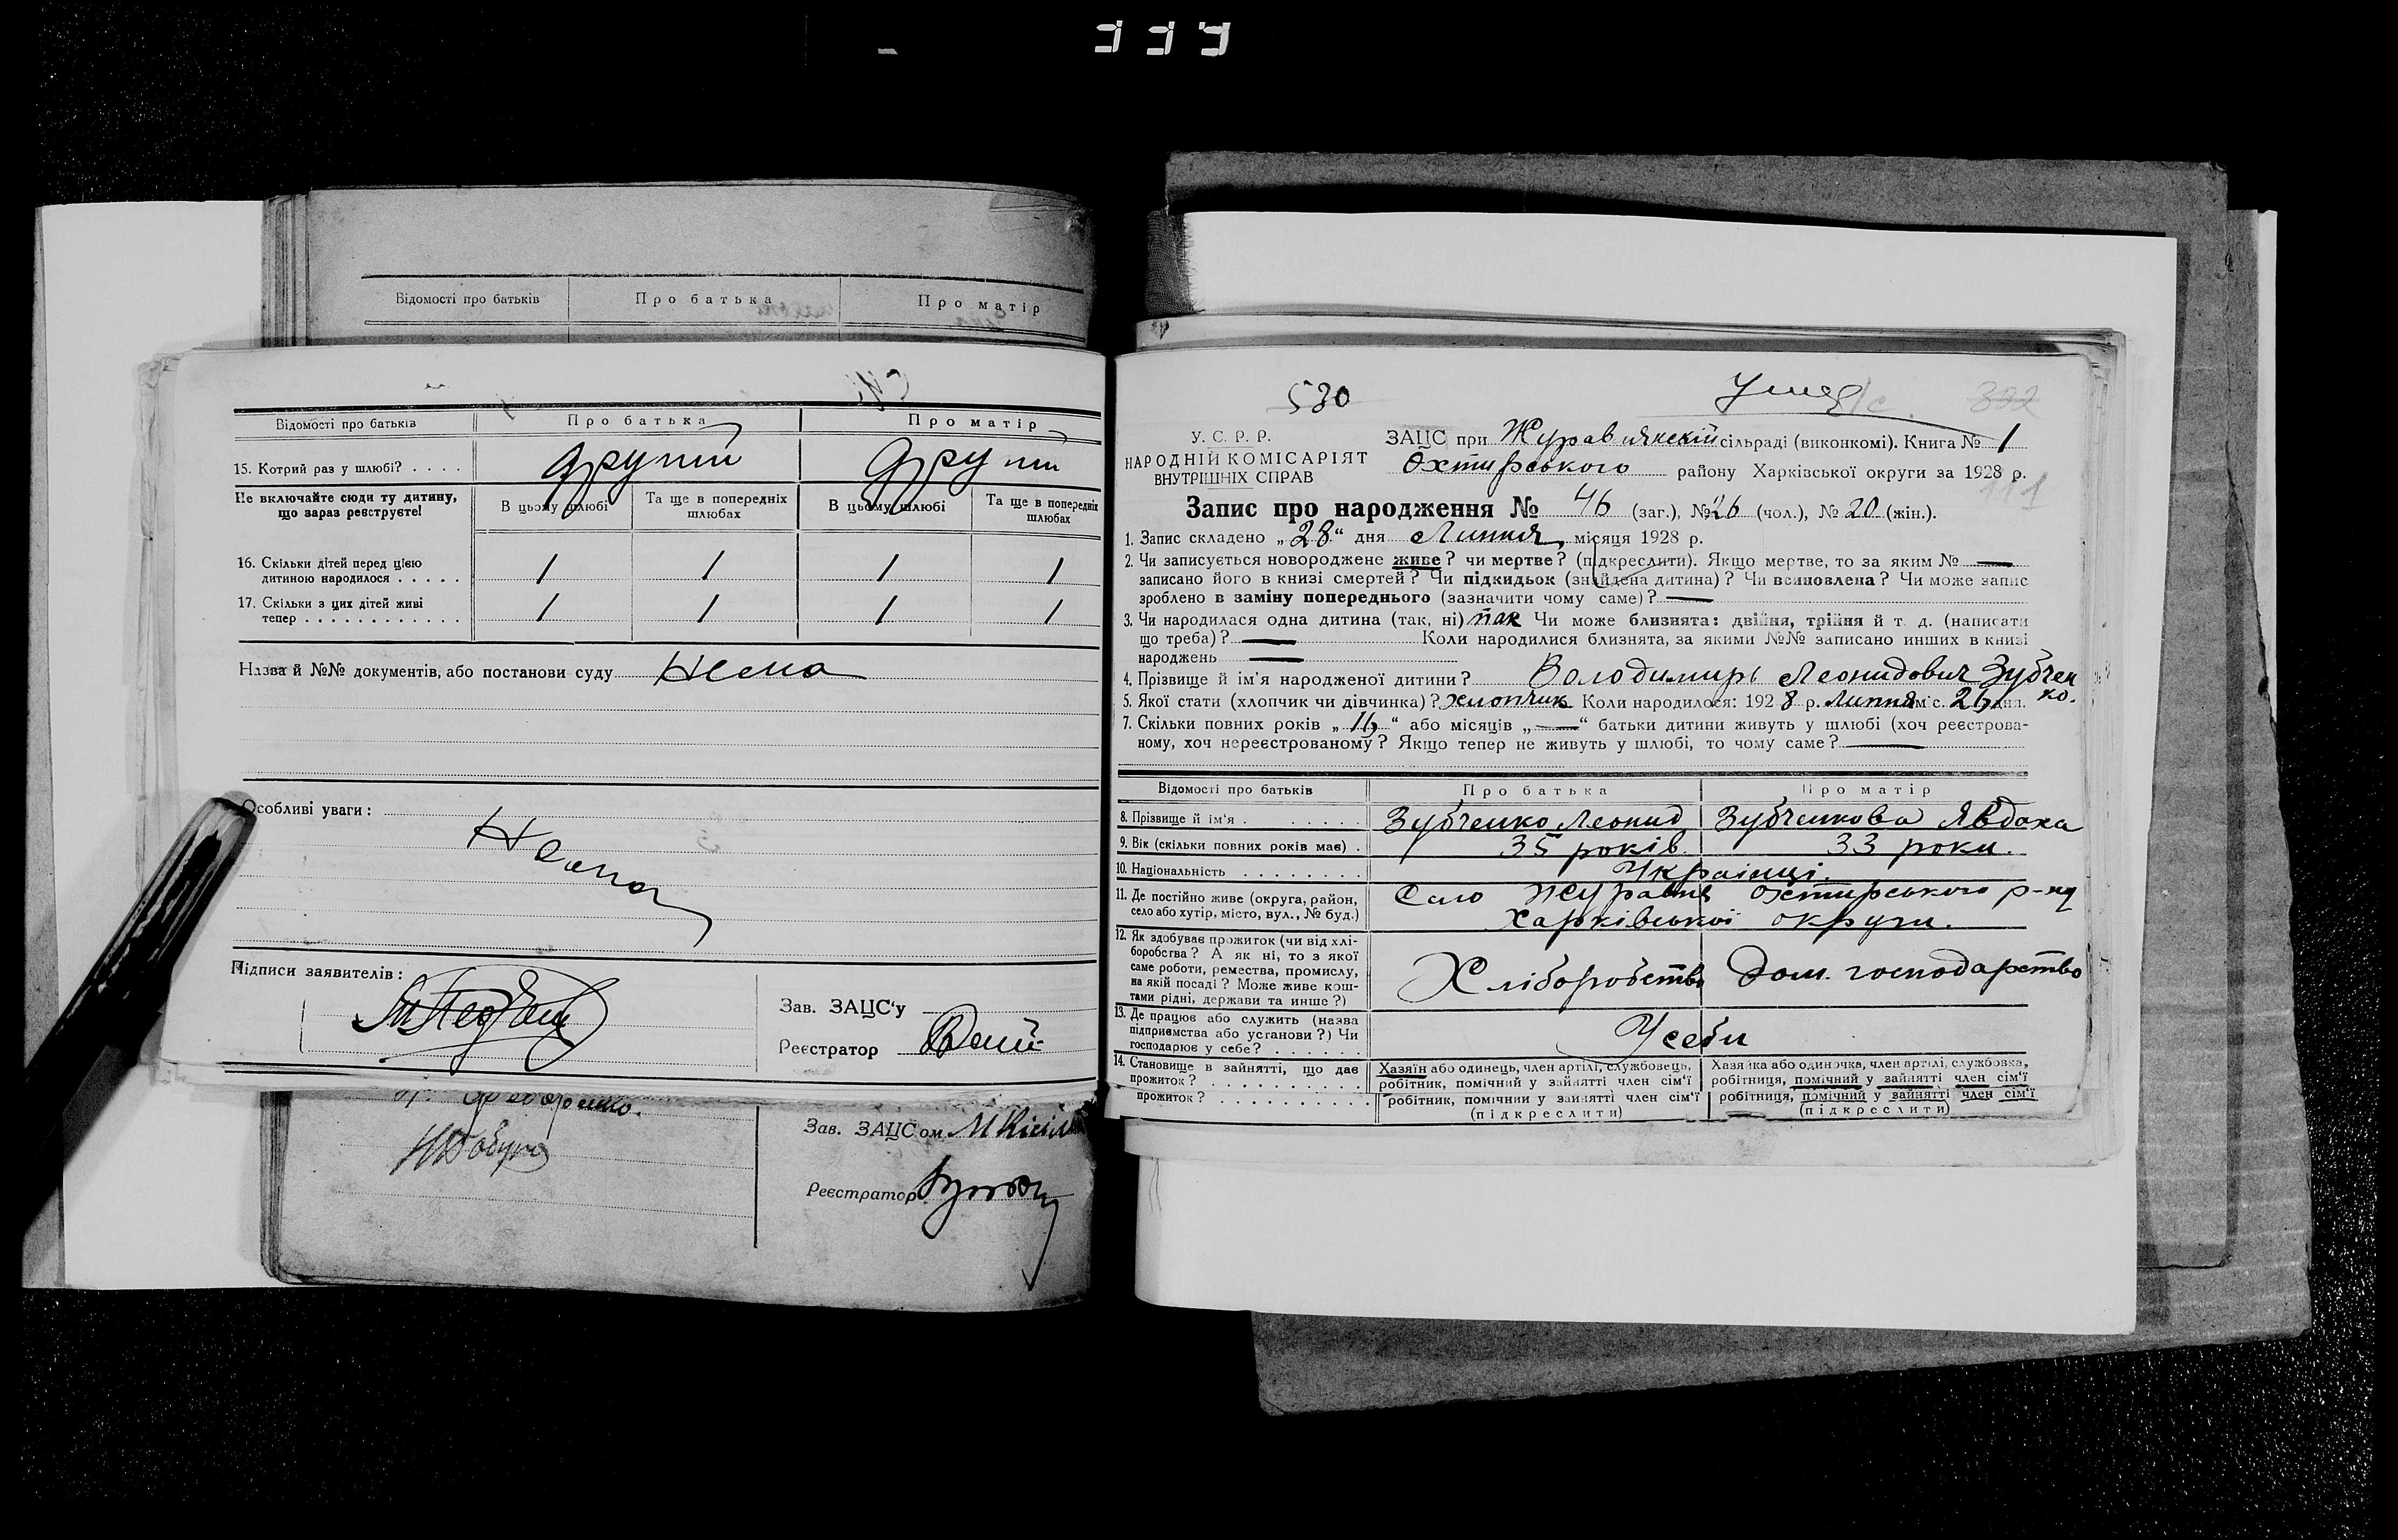 Відомості про батьків Про батька Про матір
Відомості про батьків Про батька Про матір
15. Котрий раз у шлюбі? . . . . другий другий
Не включайте сюди ту дитину, що зараз реєструєте!
В цьому шлюбі Та ще в попередніх шлюбах В цьому шлюбі Та ще в попередніх шлюбах
16. Скільки дітей перед цією
дитиною народилося . . . . . 1 1 1 1
17. Скільки з цих дітей живі
тепер . . . . . . . . . . . . 1 1 1 1
Назва й №№ документів, або постанови суду Нема
Особливі уваги:
Нема
Підписи заявителів:
Зав. ЗАЦС'у
Реєстратор
Зав. ЗАЦСом
Реєстратор
530
332
У. С. Р. Р.
НАРОДНІЙ КОМІСАРІЯТ
ВНУТРІШНІХ СПРАВ
ЗАЦС при Журавлянській сільраді (виконкомі). Книга № 1
Охтирського району Харківської округи за 1928 р.
111
Запис про народження № 46 (заг.), № 26 (чол.), № 20 (жін.).
1. Запис складено „28" дня Липня місяця 1928 р.
2. Чи записується новороджене живе? чи мертве? (підкреслити). Якщо мертве, то за яким № —
записано його в книзі смертей? Чи підкидьок (знайдена дитина)? Чи всиновлена? Чи може запис
зроблено в заміну попереднього (зазначити чому саме)? —
3. Чи народилася одна дитина (так, ні) так Чи може близнята: двійня, трійня й т. д. (написати
що треба)? — Коли народилися близнята, за якими №№ записано инших в книзі
народжень —
4. Прізвище й ім'я народженої дитини? Володимирь Леонидович Зубчен
ко.
5. Якої стати (хлопчик чи дівчинка)? хлопчик Коли народилося: 1928 р. Липня міс. 26 дня.
7. Скільки повних років „16" або місяців „—" батьки дитини живуть у шлюбі (хоч реєстрова-
ному, хоч нереєстрованому? Якщо тепер не живуть у шлюбі, то чому саме? —
Відомості про батьків Про батька Про матір
8. Прізвище й ім'я . . . . . . Зубченко Леонид Зубченкова Явдоха
9. Вік (скільки повних років має) . 35 років. 33 роки.
10. Національність . . . . . . . . Українці.
11. Де постійно живе (округа, район,
село або хутір, місто, вул., № буд.)
Село Журавне Охтирського р-ну
Харківської округи.
12. Як здобуває прожиток (чи від хлі-
боробства? А як ні, то з якої
саме роботи, ремества, промислу,
на якій посаді? Може живе кош-
тами рідні, держави та инше?)
Хліборобство Дом. господарство
13. Де працює або служить (назва
підприємства або установи?) Чи
господарює у себе? . . . . . .
Усеби
14. Становище в зайнятті, що дає
прожиток? . . . . . . . . . .
Хазяїн або одинець, член артілі, службовець,
робітник, помічний у зайнятті член сім'ї
Хазяйка або одиночка, член артілі, службовка,
робітниця, помічний у зайнятті член сім'ї
прожиток? . . . . . . . . . . робітник, помічний у зайнятті член сім'ї робітниця, помічний у зайнятті член сім'ї
(підкреслити) (підкреслити)